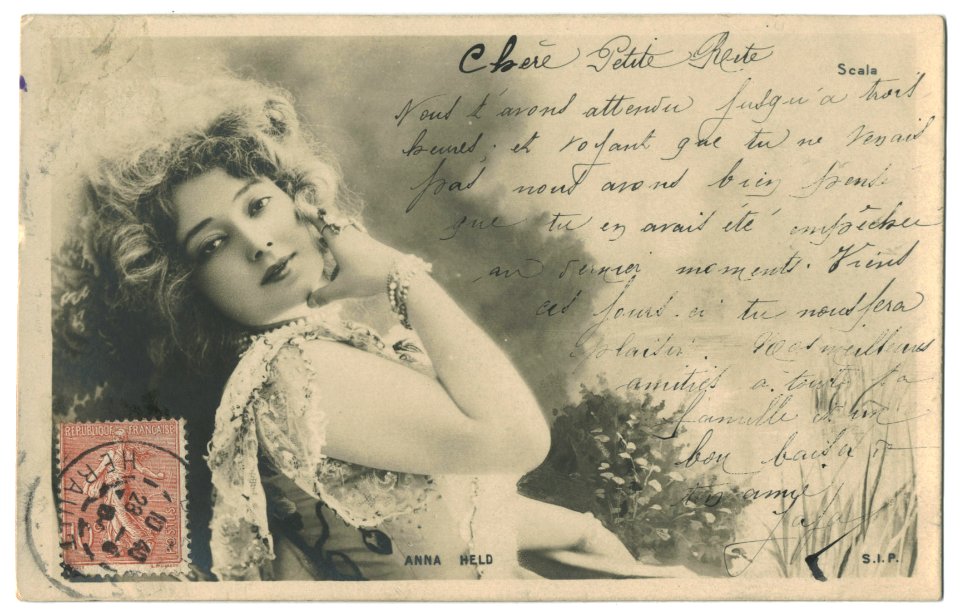 Chère Petite Reite
Scala
Nous t'avons attendu jusqu'a trois
heures, et voyant que tu ne venais
pas, nous avons bien pensé
que tu en avais été empêcher
au dernier moments. Viens
ces jours-ci tu nous fera
plaisir. Nos meilleures
amitiés à toute ta
famille et un
bon baiser de
ton amie
REPUBLIQUE FRANÇAISE
HERAULT
ANNA HELD
S.I.P.